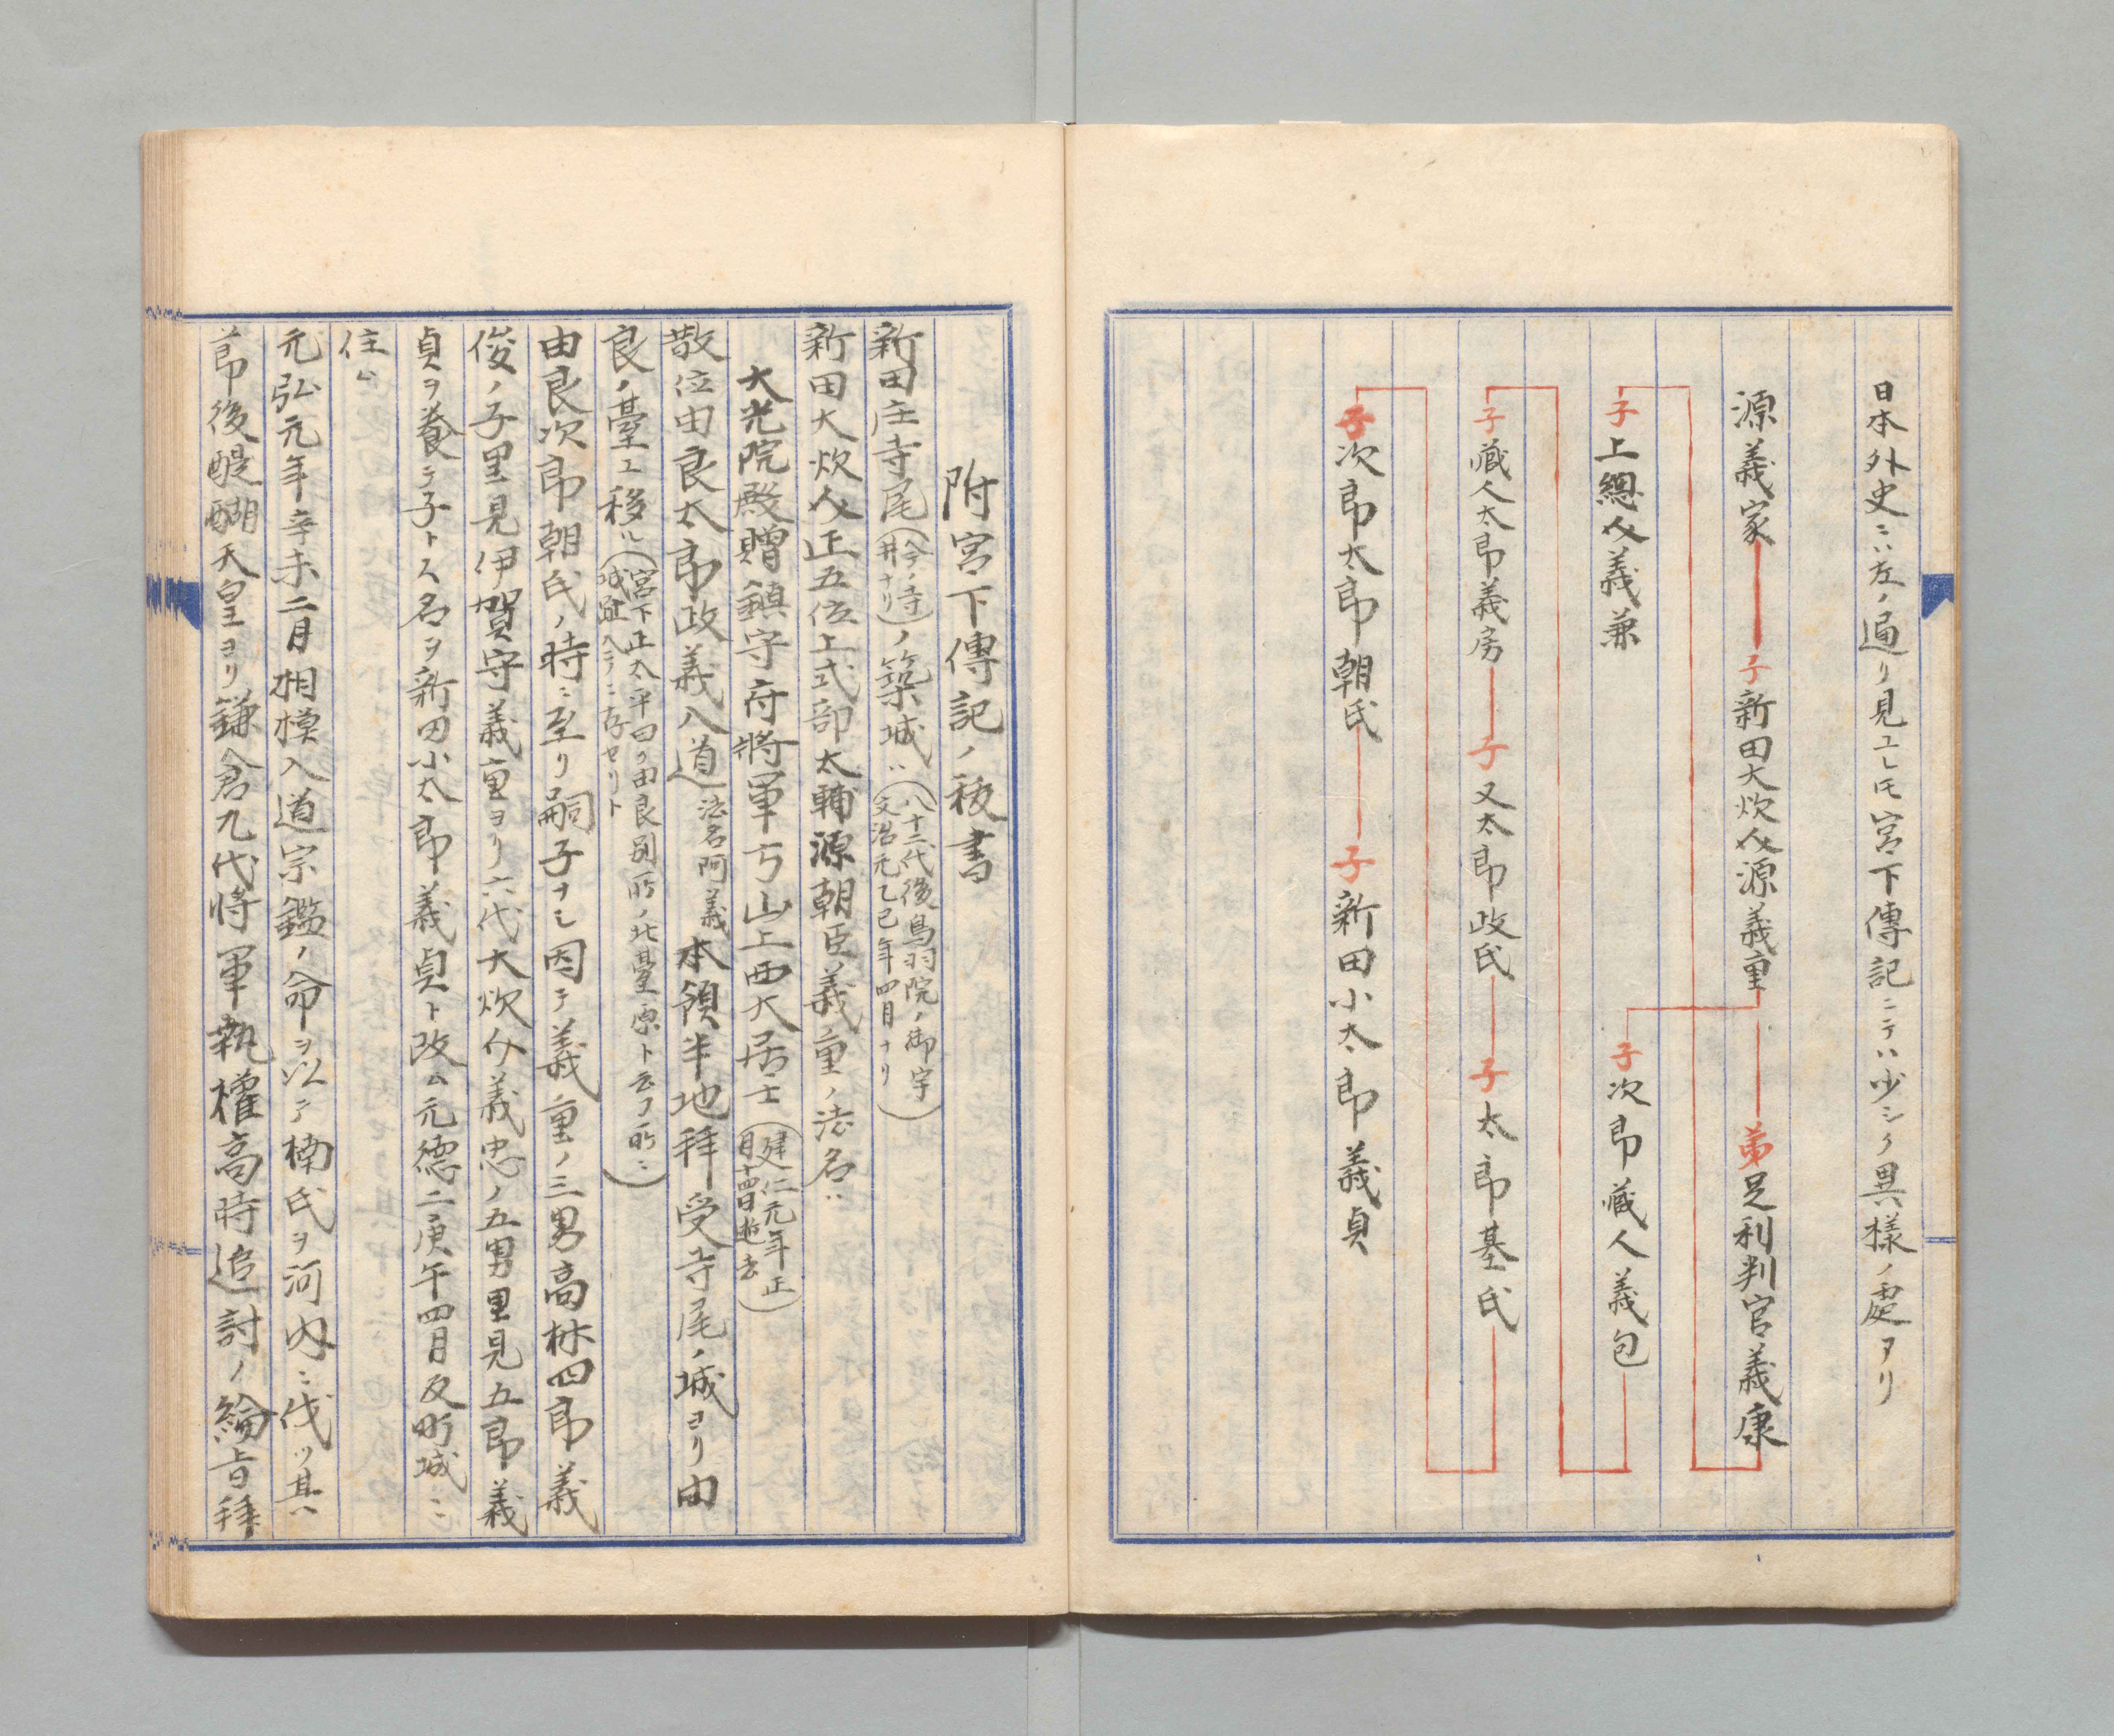 日本外史ニハ左ノ通リ見エレ𪜈宮下傳記ニテハ少シク異樣ノ處アリ
源義家 子新田大炊介源義重 弟足利判官義康
子次郎藏人義包
子上總介義兼
子藏人太郎義房 子又太郎政氏 子太郎基氏
子次郎太郎朝氏 子新田小太郎義貞
附宮下傳記ノ秡書
新田庄寺尾(今ノ寺井ナリ)ノ築城ハ(八十二代後鳥羽院ノ御宇文治元乙巳年四月ナリ)
新田大炊介正五位上式部太輔源朝臣義重ノ法名ハ
大光院殿贈鎮守府將軍方山上西大居士(建仁元年正月十四日逝去)
散位由良太郎政義入道法名阿義本領半地拜受寺尾ノ城ヨリ由
良ノ臺エ移ル(宮下正太平曰ク由良別所ノ北臺原ト云フ所ニ城趾今ニ存セリト)
由良次郎朝氏ノ時ニ至リ嗣子ナシ因テ義重ノ三男高林四郎義
俊ノ子里見伊賀守義重ヨリ六代大炊介義忠ノ五男里見五郎義
貞ヲ養テ子トス名ヲ新田小太郎義貞ト改ム元德二庚午四月反町城ニ
住ム
元弘元年辛未二月相模入道宗鑑ノ命ヲ以テ楠氏ヲ河内ニ伐ツ其
節後醍醐天皇ヨリ鎌倉九代將軍執權高時追討ノ綸旨拜